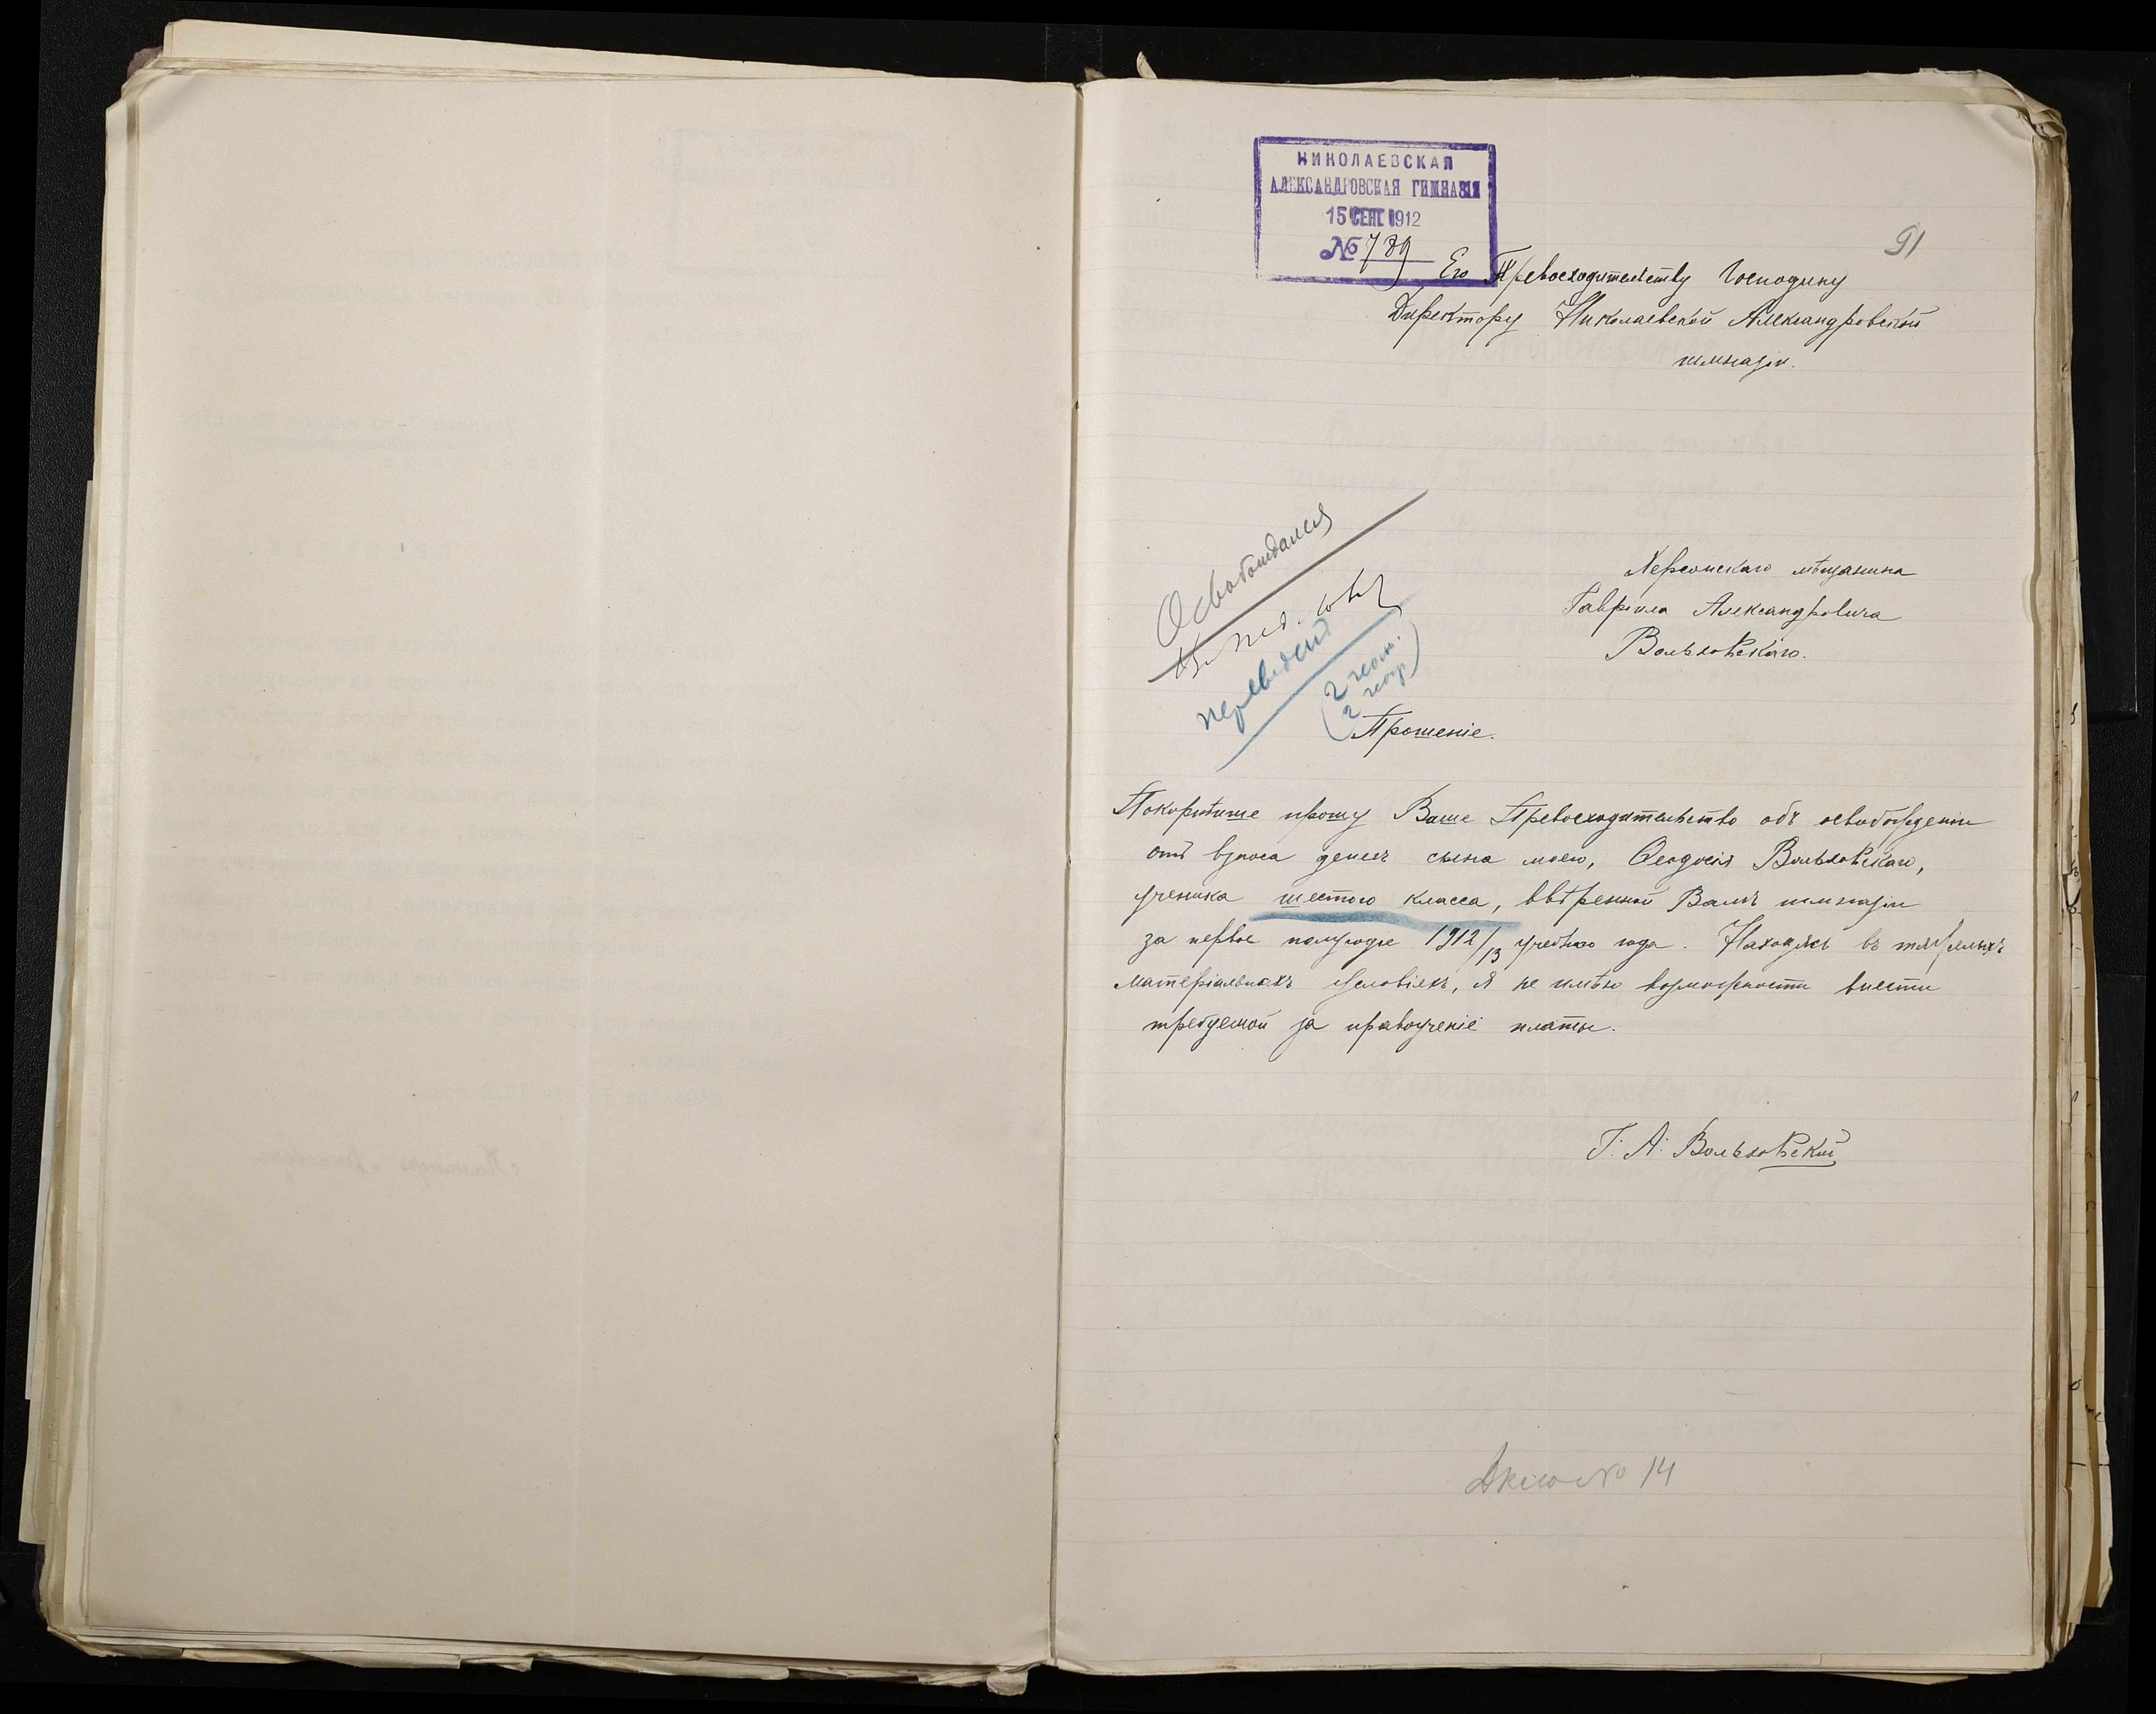 НИКОЛАЕВСКАЯ
АЛЕКСАНДРОВСКАЯ ГИМНАЗІЯ
15 СЕНТ. 1912
№ 789
91
Его Превосходительству Господину
Директору Николаевской Александровской
гимназіи.
Освобождался
Въ пед. сов.
переведенъ
Херсонскаго мѣщанина
Гавріила Александровича
Вольховскаго.
Прошеніе.
Покорнѣйше прошу Ваше Превосходительство объ освобожденіи
отъ взноса денегъ сына моего, Ѳеодосія Вольховскаго,
ученика шестого класса, ввѣренной Вамъ гимназіи
за первое полугодіе 1912/13 учебнаго года. Находясь въ тяжелыхъ
матеріальныхъ условіяхъ, я не имѣю возможности внести
требуемой за правоученіе платы.
Г. А. Вольховскій
№ 14